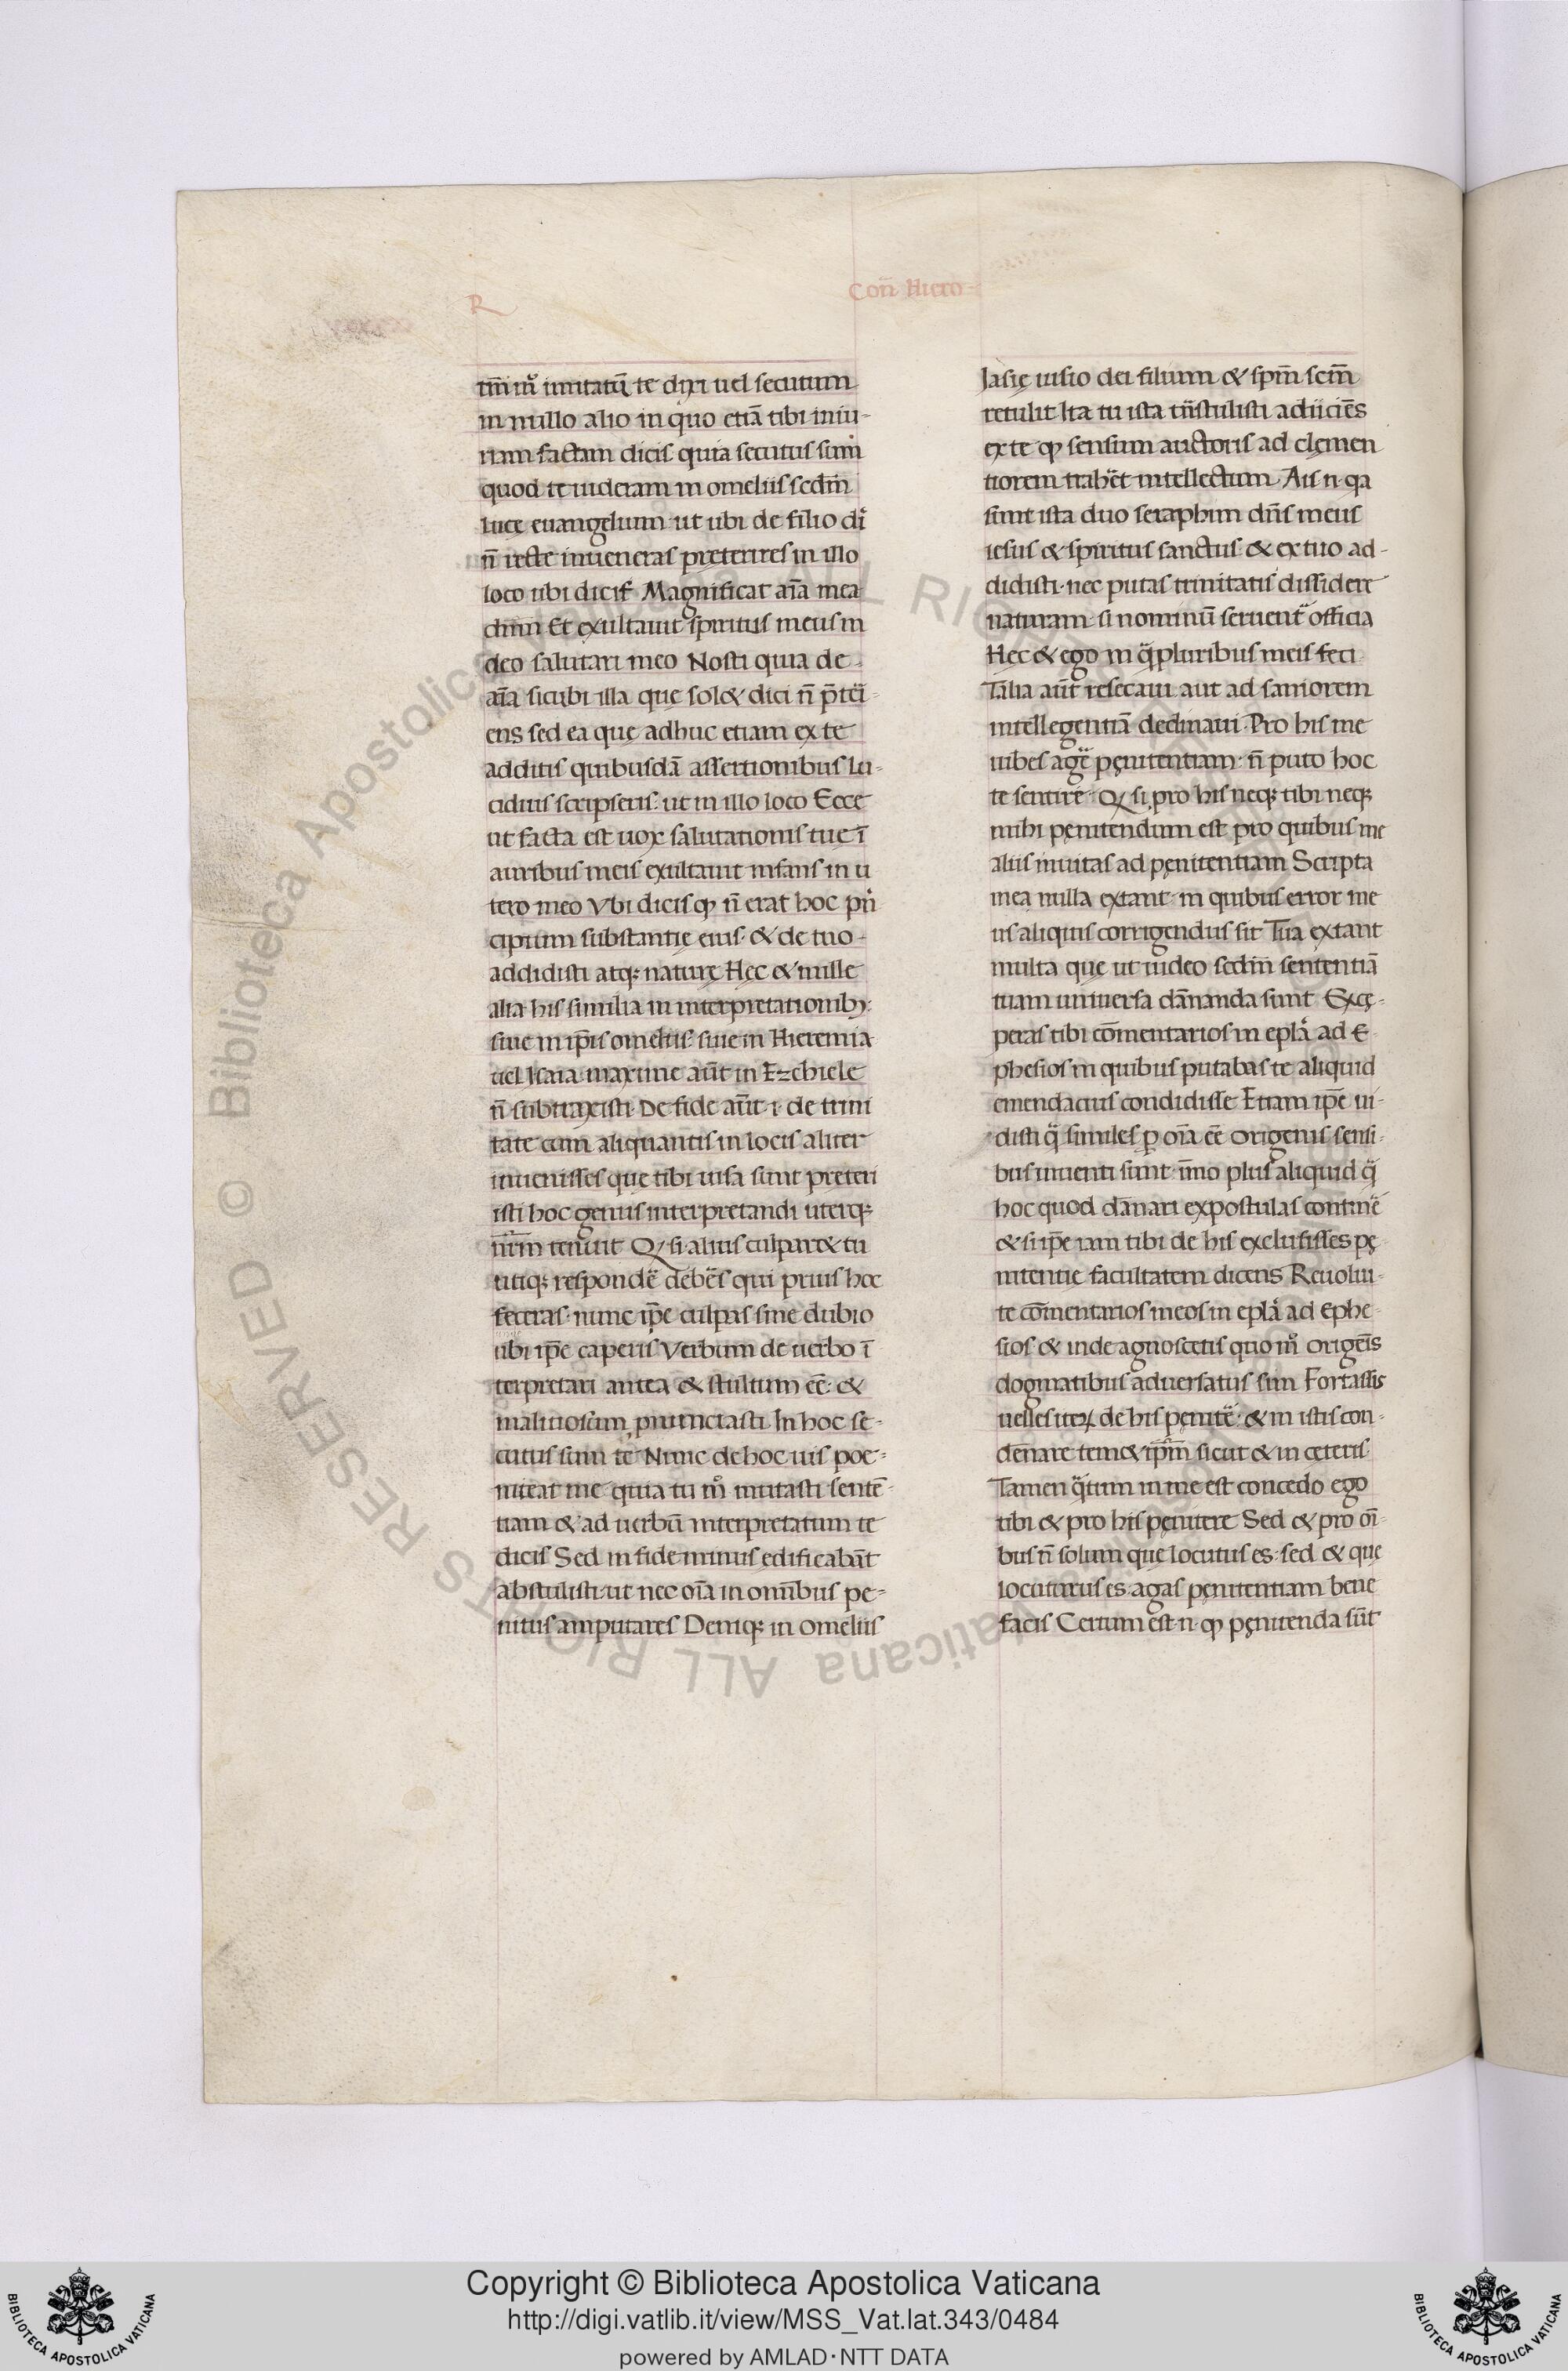 R
Con̄ Hiero-
tm̄ mº imitatū te dixi uel secutum
in nullo alio in quo etiā tibi iniu-
riam factam dicis quia secutus sum
quod te uideram in omeliis scdm̄
luce euangelium ut ubi de filio di
n̄ recte inueneras preterires in illo
loco ubi dicit Magnificat aīa mea
dnm̄ Et exultauit spiritus meus in
deo salutari meo Nosti quia de
aīa sicubi illa que sol& dici n̄ p̄teri-
ens sed ea quę adhuc etiam ex te
additis quibusdā assertionibus lu-
cidius scripseris ut in illo loco Ecce
ut facta est uox salutationis tue ī
auribus meis exultauit infans in u
tero meo Vbi dicis qp n̄ erat hoc pri
cipium substantię eius & de tuo
addidisti atq; naturę Hęc & mille
alia his similia in interpretationib;
siue in ip̄is omeliis siue in Hieremia
uel Isaia maxime aūt in Ezechiele
n̄ subtraxisti De fide aūt .i. de trini
tate cum aliquantis in locis aliter
inuenisses que tibi uisa sunt preteri
isti hoc genus interpretandi uterq;
nr̄m tenuit Q si alius culpar& tu
utiq; respondē debēs qui prius hoc
feceras nunc ip̄e culpas sine dubio
ubi ip̄e caperis Verbum de uerbo ī
terpretari antea & stultum eē &
malitiosum pnunciasti In hoc se-
cutus sum te Nunc de hoc uis poe-
niteat me quia tu mº mutasti sentē-
tiam & ad uerbū interpretatum te
dicis Sed in fide minus edificabāt
abstulisti ut nec oīa in omnibus pe-
nitus amputares Deniq; in omeliis
Iasię uisio dei filium & spm̄ scm̄
retulit Ita tu ista trn̄stulisti adiiciēs
ex te qp sensum auctoris ad clęmen
tiorem trahēt intellectum Ais n. qa
sunt ista duo seraphim dn̄s meus
iesus & spiritus sanctus & ex tuo ad-
didisti nec putas trinitatis dissidere
naturam si nominū seruent officia
Hęc & ego in q̄pluribus meis feci
Talia aūt resecaui aut ad saniorem
intellegentiā declinaui Pro his me
iubes agē pęnitentiam n̄ puto hoc
te sentire Q si pro his neq; tibi neq;
mihi pęnitendum est pro quibus me
aliis inuitas ad pęnitentiam Scripta
mea nulla extant in quibus error me
us aliquis corrigendus sit Tua extant
multa que ut uideo scdm̄ sententiā
tuam uniuersa dānanda sunt Excę-
peras tibi cōmentarios in epla ad E
phesios in quibus putabas te aliquid
emendacius condidisse Etiam ip̄e ui-
disti q̄ similes p oīa eē origenis sensi-
bus inuenti sunt īmo plus aliquid q̄
hoc quod dānari expostulas continē
& sup̄e iam tibi de his exclusisses pę
nitentie facultatem dicens Reuolui-
te cōmentarios meos in epla ad Ephe
sios & inde agnoscetis quo mº origeīs
dogmatibus aduersatus sim Fortassis
uelles iterꝝ de his pęnitē & in istis con-
dēnare tem& ip̄m sicut & in ceteris
Tamen q̄tum in me est concedo ego
tibi & pro his pęnitere Sed & pro oī-
bus n̄ solum que locutus es sed & que
locuturus es agas pęnitentiam bene
facis Certum est n. qp pęnitenda sūt
Biblioteca Apostolica Vaticana ALL RIGHTS RESERVED ©
Copyright © Biblioteca Apostolica Vaticana
http://digi.vatlib.it/view/MSS_Vat.lat.343/0484
powered by AMLAD·NTT DATA
BIBLIOTECA APOSTOLICA VATICANA
BIBLIOTECA APOSTOLICA VATICANA